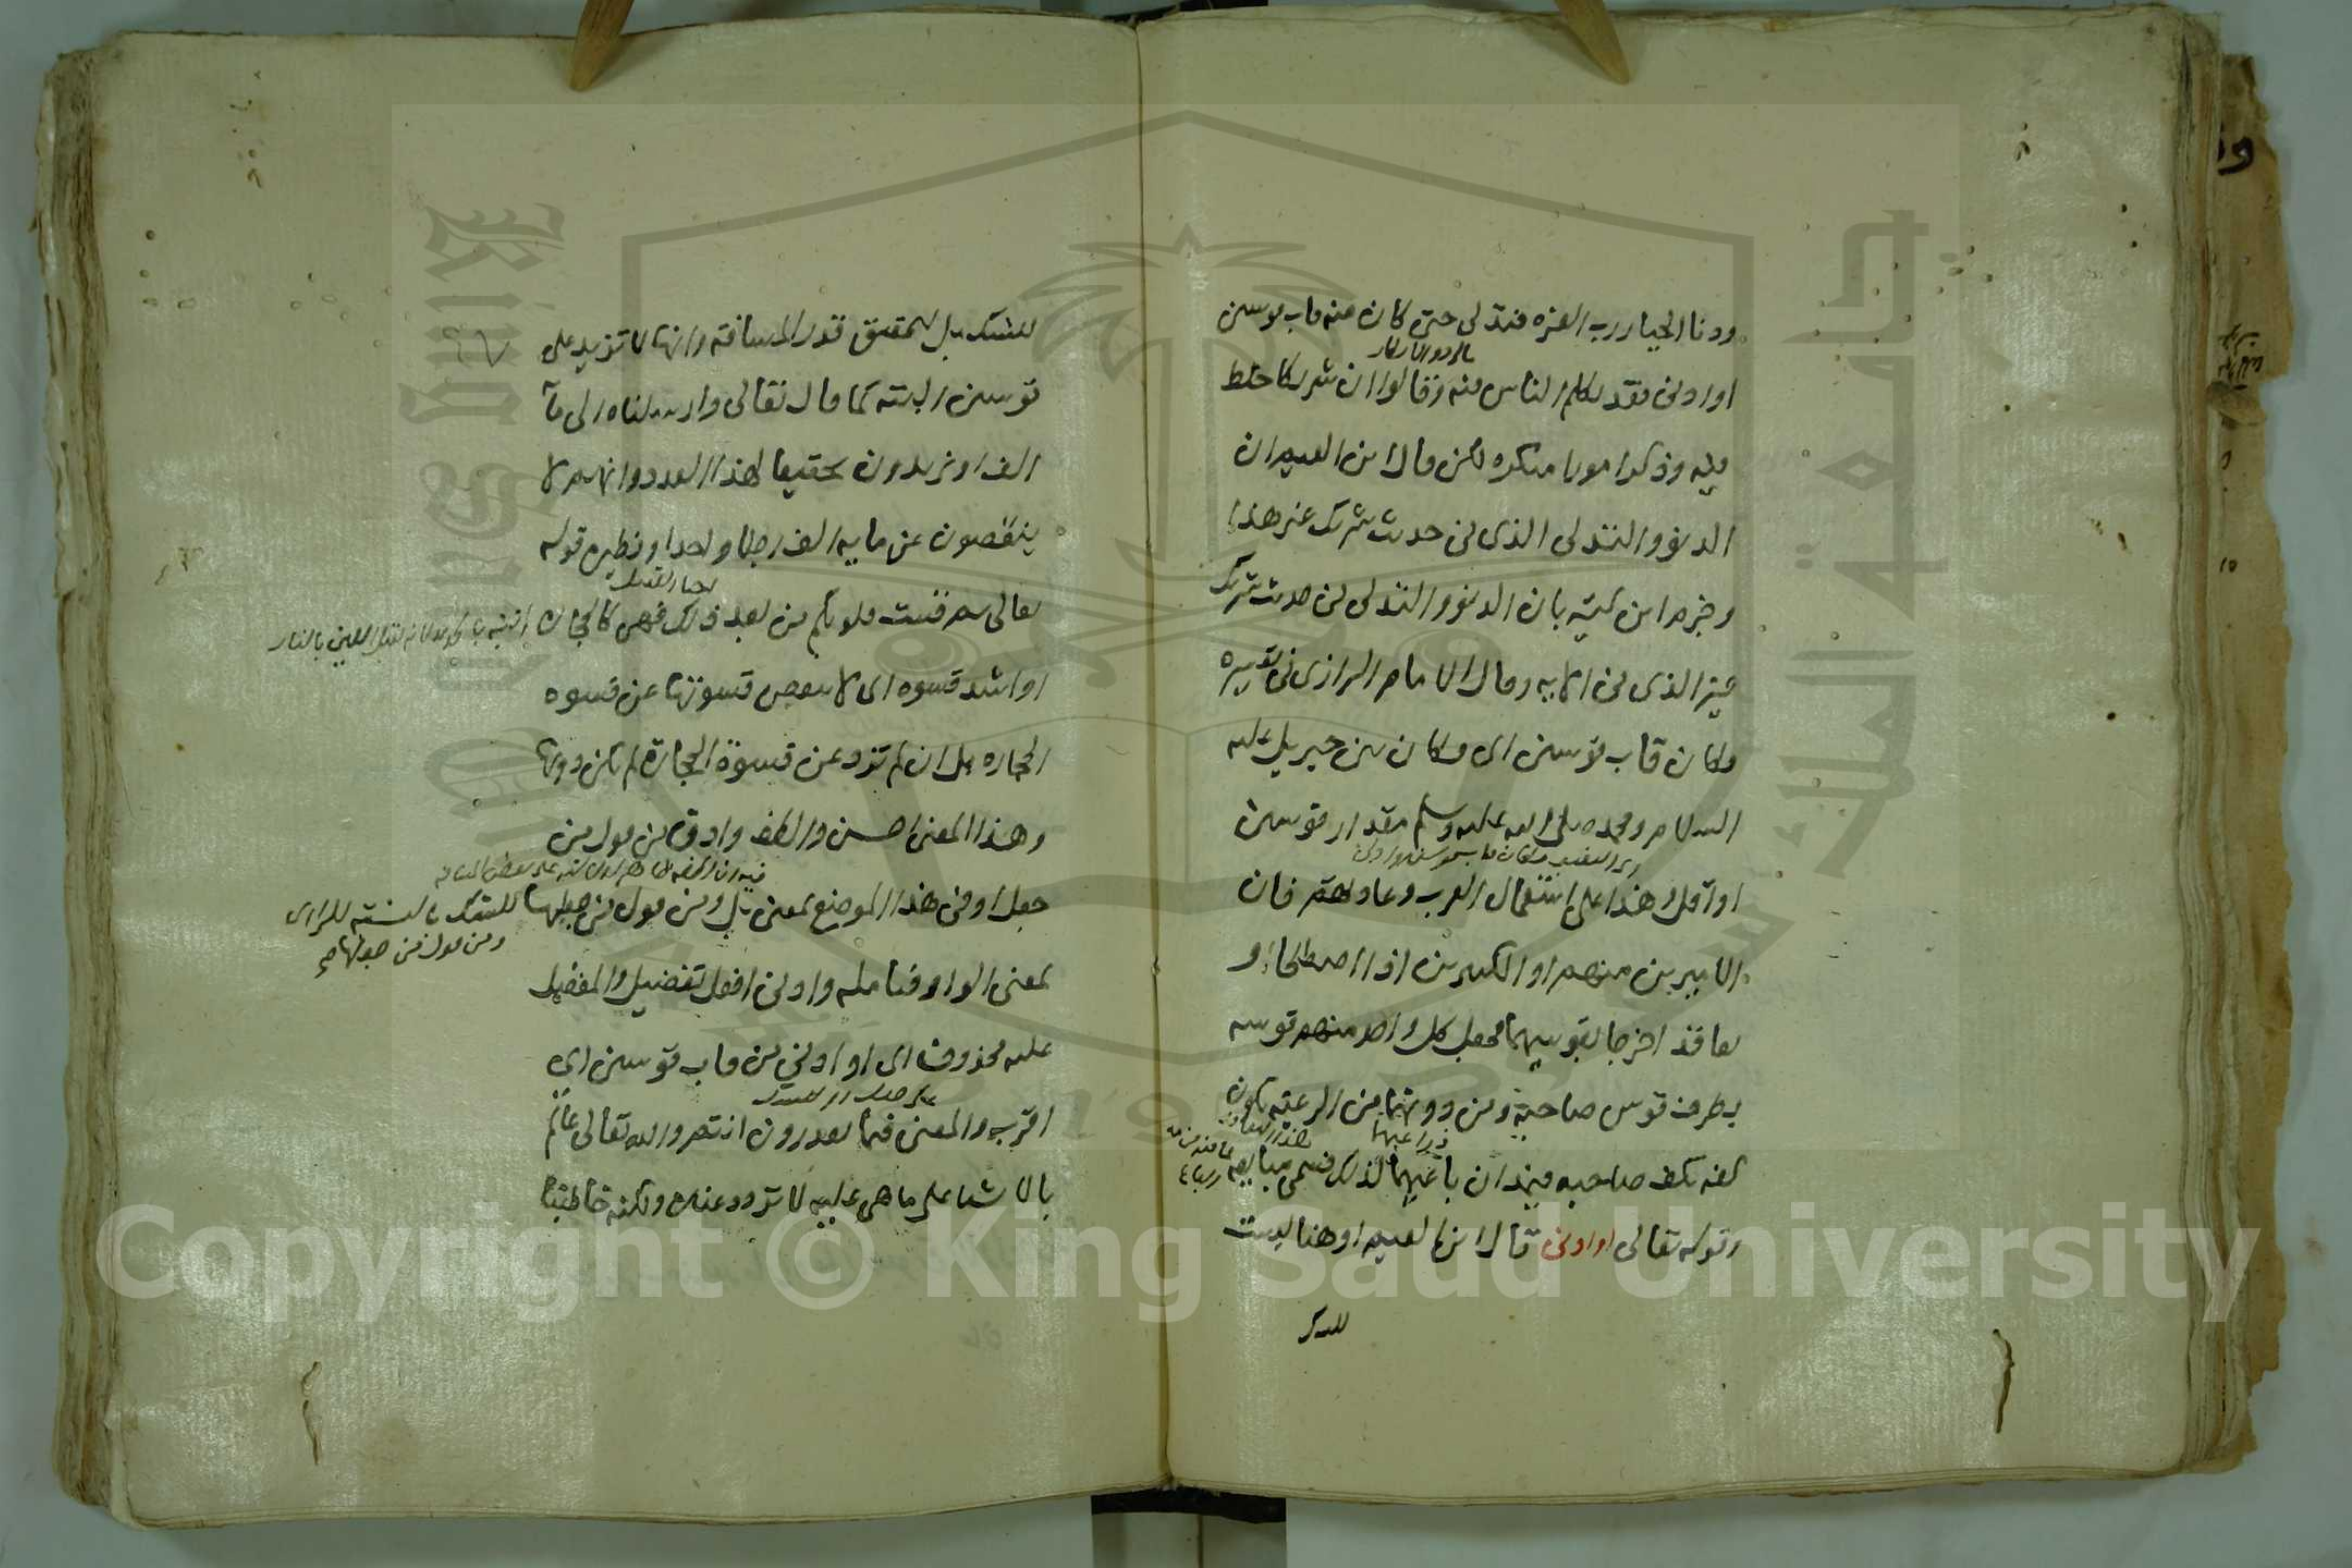 ودنا الجبار رب العزه فتدلى حتى كان منه قاب قوسين
او ادنى فقد تكلم الناس فيه وقالوا ان شريكا خلط
فيه وذكر امورا منكره لكن قال ابن القيم ان
الدنو والتدلى الذى فى حديث شريك غير هذا
وجزم ابن كثير بان الدنو والتدلى فى حديث شريك
غير الذى فى الايه وقال الامام الرازى فى تفسيره
فكان قاب قوسين اى فكان بين جبريل عليه
السلام ومحمد صلى الله عليه وسلم مقدار قوسين
او اقل وهذا على استعمال العرب وعادتهم فان
الاميرين منهم او الكبيرين اذا اصطلحا او
تعاقدا خرجا بقوسيهما فجعل كل واحد منهم قوسه
بطرف قوس صاحبه ومن دونهما من الرعيه يكون
كفه بكف صاحبه فيمدان باعيهما لذلك فسمى مبايعه
وقوله تعالى او ادنى قال ابن القيم او هنا ليست
للشك
للشك بل لتحقيق قدر المسافة وانها لا تزيد على
قوسين البته كما قال تعالى وارسلناه الى مآ
الف او يزيدون تحقيقا لهذا العدد وانهم لا
ينقصون عن مايه الف رجلا واحدا ونظيره قوله
تعالى ثم قست قلوبكم من بعد ذلك فهى كالحجارة
او اشد قسوه اى لا تنقص قسوتها عن قسوه
الحجاره بل ان لم تزد عن قسوة الحجارة لم تكن دونها
وهذا المعنى احسن والطف وادق من قول من
جعل او فى هذا الموضع بمعنى بل ومن قول من جعلها للشك بالنسبة للراى
ومن قول من جعلها صح
بمعنى الواو فتامله وادنى افعل تفضيل والمفضل
عليه محذوف اى او ادنى من قاب قوسين اى
اقرب والمعنى فيما تقدرون انتم والله تعالى عالم
بالاشيا على ما هى عليه لا تردد عنده ولكنه خاطبنا
Copyright © King Saud University